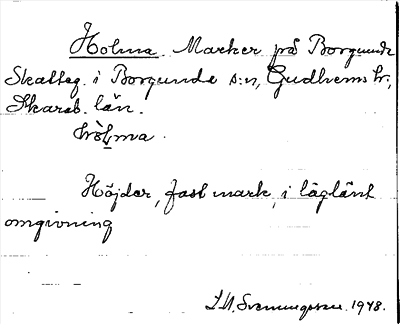 Holma. Marker på Borgunda
Skatteg. i Borgunda s:n, Gudhems hr,
Skarab. län.
hòlma.
Höjder, fast mark, i låglänt
omgivning
Svenungsson. 1948.